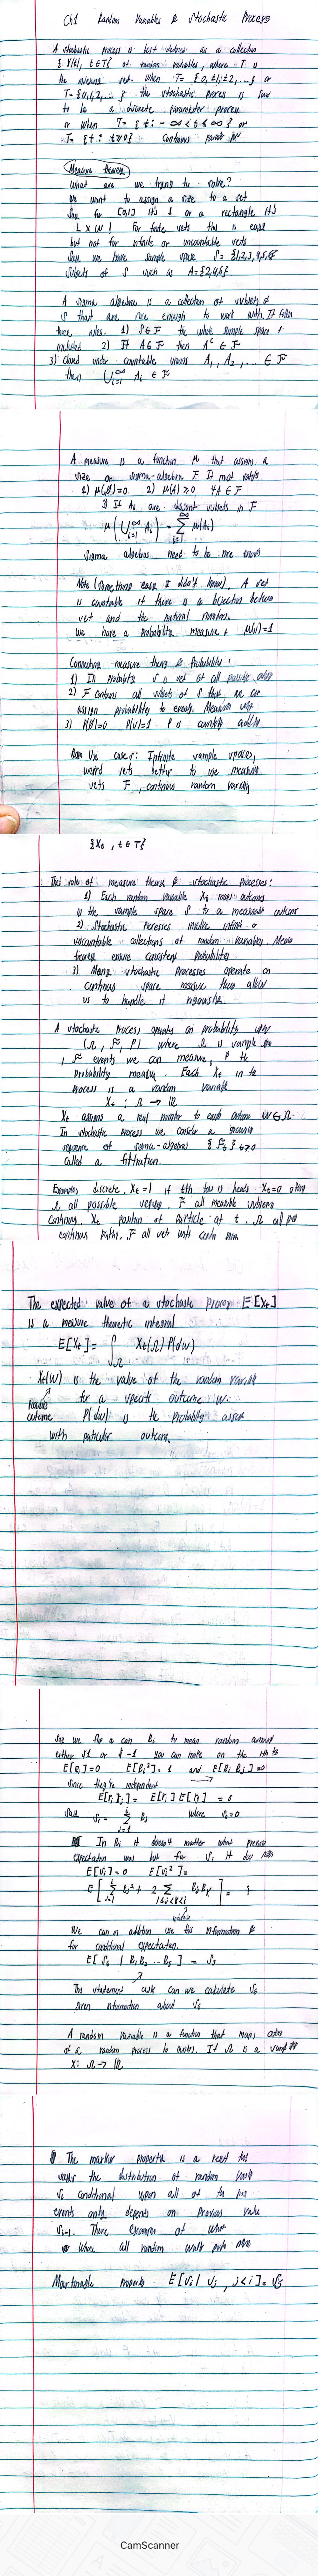 Ch1 Random Variables & Stochastic Process
A stochastic process is best defined as a collection
{X(t), t∈T} of random variables, where T is
the indexing set. When T={0,±1,±2,...} or
T={0,1,2,...} the stochastic process is said
to be a discrete parameter process
or when T={t: -∞<t<∞} or
T={t: t≥0} continuous
Measure theory
What are we trying to solve?
We want to assign a size to a set
Say for [0,1] it's 1 or a rectangle it's
L x W! For finite sets this is easy
but not for infinite or uncountable sets
Say we have sample space S={1,2,3,4,5,6}
subsets of S such as A={2,4,6}
A sigma algebra is a collection of subsets of
S that are nice enough to work with. It follows
three rules. 1) S∈F the whole sample space
included 2) If A∈F then Aᶜ∈F
3) Closed under countable unions A₁, A₂, ... ∈F
then ⋃ᵢ₌₁^∞ Aᵢ ∈ F
A measure is a function μ that assigns a
size on sigma-algebra F. It must satisfy
1) μ(∅)=0 2) μ(A)≥0 ∀A∈F
3) If Aᵢ are disjoint subsets in F
μ(⋃ᵢ₌₁^∞ Aᵢ) = Σᵢ₌₁^∞ μ(Aᵢ)
Sigma algebras need to be nice enough
Note (Something easy I didn't know). A set
is countable if there is a bijection between
set and the natural numbers.
We have a probability measure if μ(S)=1
Connecting measure theory & Probability:
1) In probability S is set of all possible
2) F contains all subsets of S that we can
assign probability to events.
3) P(∅)=0 P(S)=1 P is countably additive
Use cases: Infinite sample spaces,
weird sets better to use measure
sets F, continuous random variables
{Xₜ, t∈T}
The role of measure theory & stochastic processes:
1) Each random variable Xₜ maps outcomes
in the sample space S to a measurable outcome
2) Stochastic processes involve infinite or
uncountable collections of random variables. Measure
theory ensures consistent probability
3) Many stochastic processes operate on
continuous space measure theory allow
us to handle it rigorously.
A stochastic process operates on probability space
(Ω, F, P) where Ω is sample
, F events we can measure, P the
probability measure. Each Xₜ in the
process is a random variable
Xₜ: Ω → ℝ
Xₜ assigns a real number to each outcome ω∈Ω.
In stochastic process we consider a growing
sequence of sigma-algebras {Fₜ}ₜ≥0
called a filtration.
Examples discrete. Xₜ=1 if tth toss is heads Xₜ=0 otherwise
Ω all possible F all measurable
continuous. Xₜ position of particle at t. Ω all
continuous paths. F all sets with
The expected value of a stochastic process E[Xₜ]
is a measure theoretic integral
E[Xₜ]= ∫_Ω Xₜ(Ω) P(dω)
Xₜ(ω) is the value of the random variable
for a specific outcome ω.
Possible outcome
P(dω) is the probability
with particular outcome.
Say we flip a coin Rᵢ to mean random amount
either $1 or $-1 you can make on the ith toss
E[Rᵢ]=0 E[Rᵢ²]=1 and E[RᵢRⱼ]=0
since they're independent
E[rᵢrⱼ]= E[rᵢ]E[rⱼ] = 0
Sᵢ = Σⱼ₌₁ⁱ Rⱼ where S₀=0
In Rᵢ it doesn't matter what previous
expectation was but for Sᵢ it does
E[Sᵢ]=0 E[Sᵢ²]=
E[Σ Rⱼ² + 2 Σ RⱼRₖ] = i
We can in addition use this information &
for conditional expectation.
E[S₆ | R₁R₂...R₅] = S₅
This statement asks can we calculate S₆
given information about S₅
A random variable is a function that maps outcomes
of a random process to numbers. If Ω is a
X: Ω → ℝ
The markov property is a
says the distribution of random
Sᵢ conditional upon all of the past
events only depends on previous value
Sᵢ₋₁. There examples of
where all random walk
Martingale property E[Sᵢ | Sⱼ, j<i] = Sⱼ
CamScanner